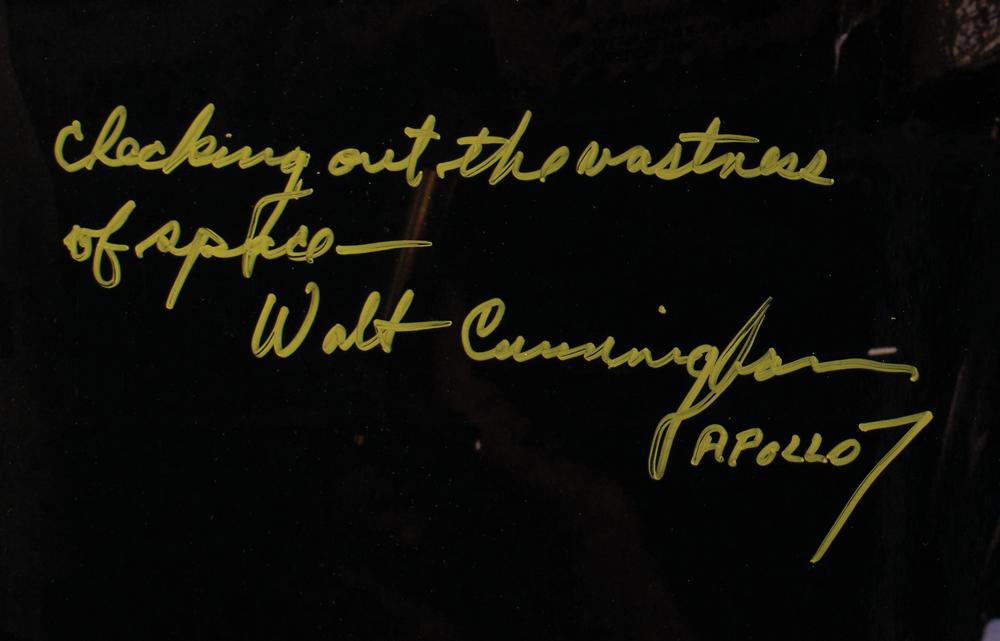 Checking out the vastness
of space—
Walt Cunningham
APOLLO 7